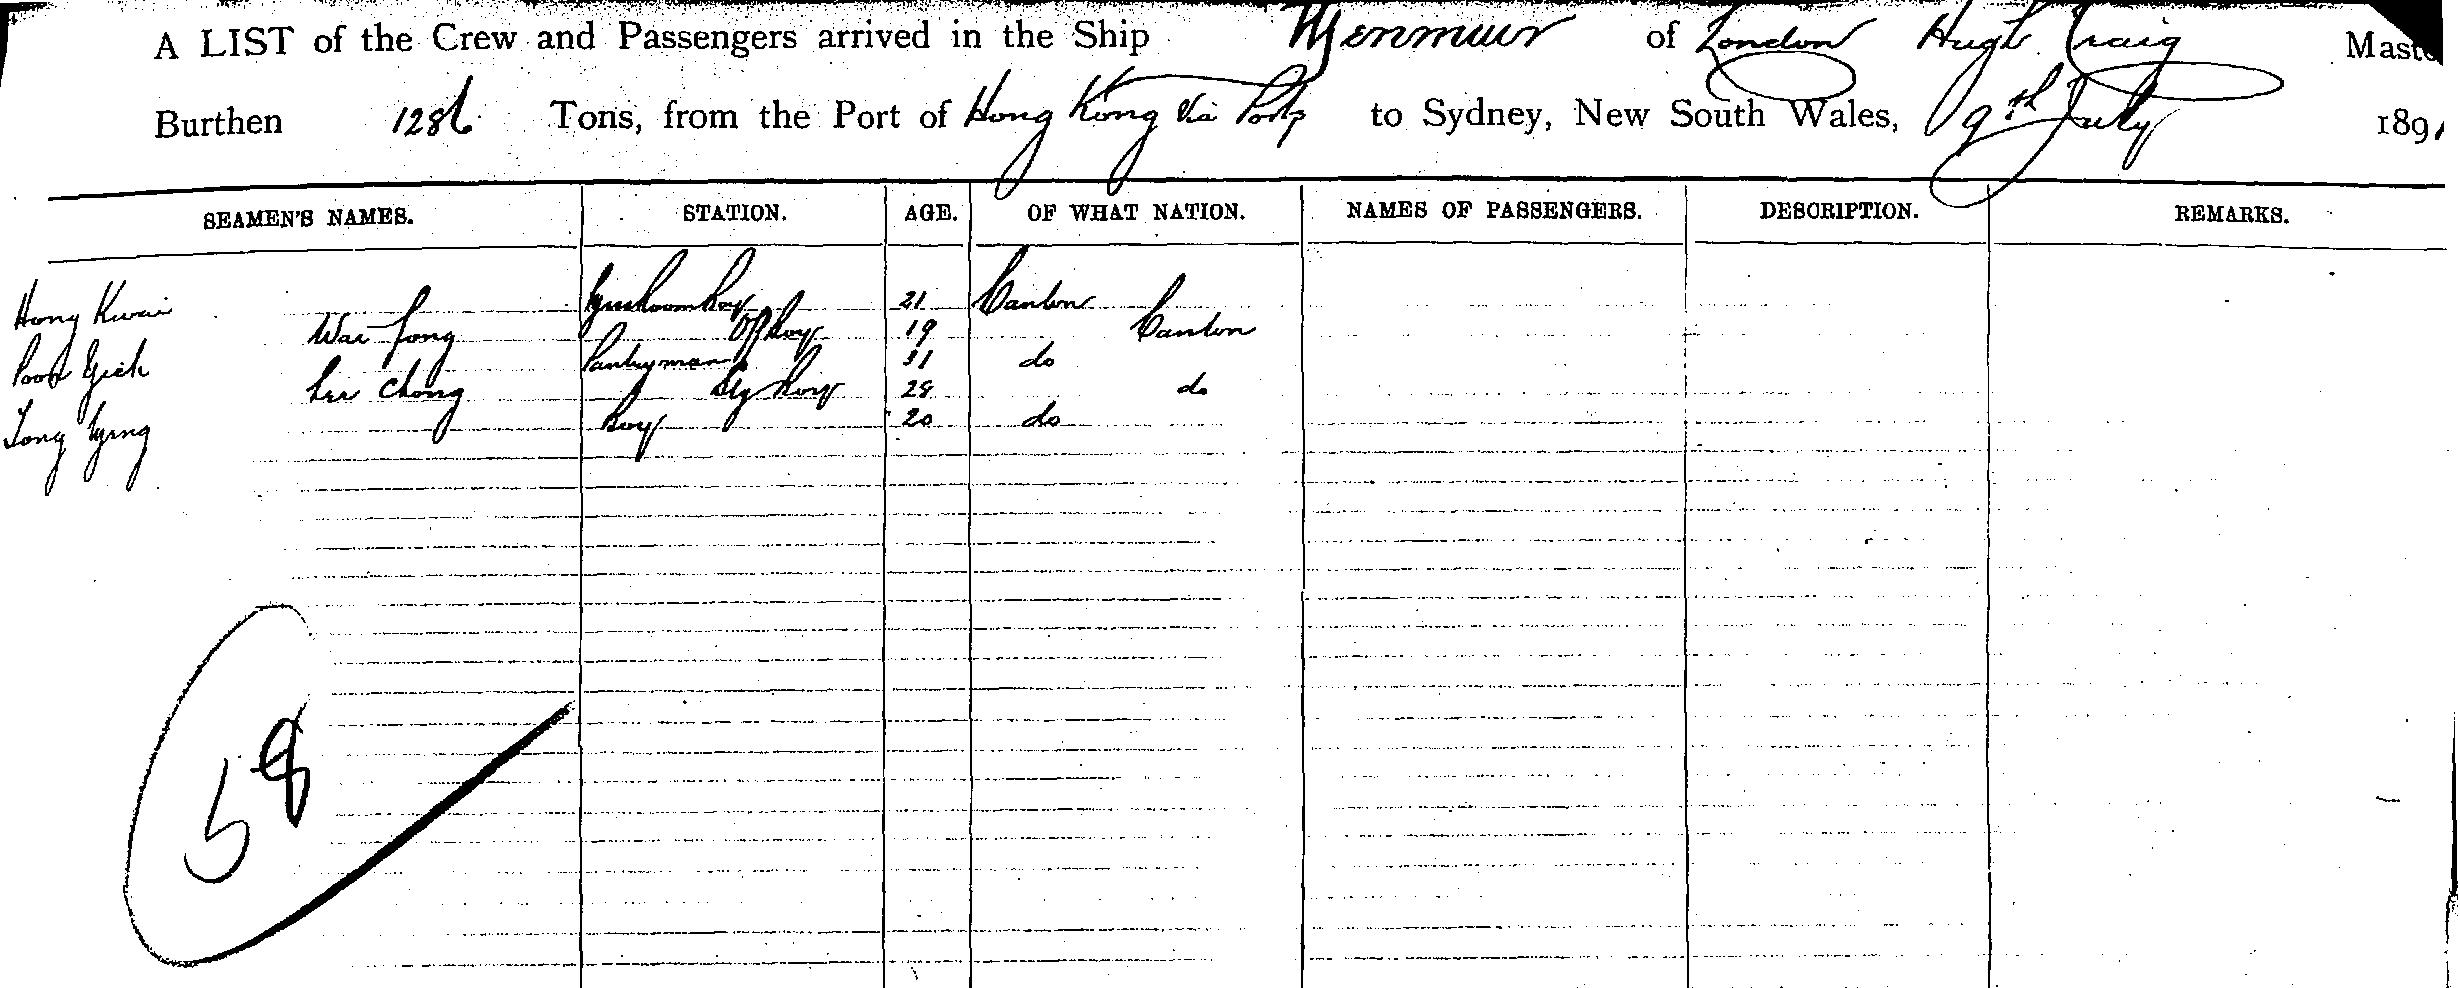 A LIST of the Crew and Passengers arrived in the Ship Menmuir of London Hugh Craig Maste
Burthen 1286 Tons, from the Port of Hong Kong via Ports to Sydney, New South Wales, 9th July 1891
SEAMEN'S NAMES. STATION. AGE. OF WHAT NATION. NAMES OF PASSENGERS. DESCRIPTION. REMARKS.
Hong Kwai Gunroom Boy 21 Canton
Wai Fong Off Boy 19 Canton
Poon Yick Pantryman 31 do
Lee Chong Stg Boy 28 do
Tong Ying Boy 20 do
58